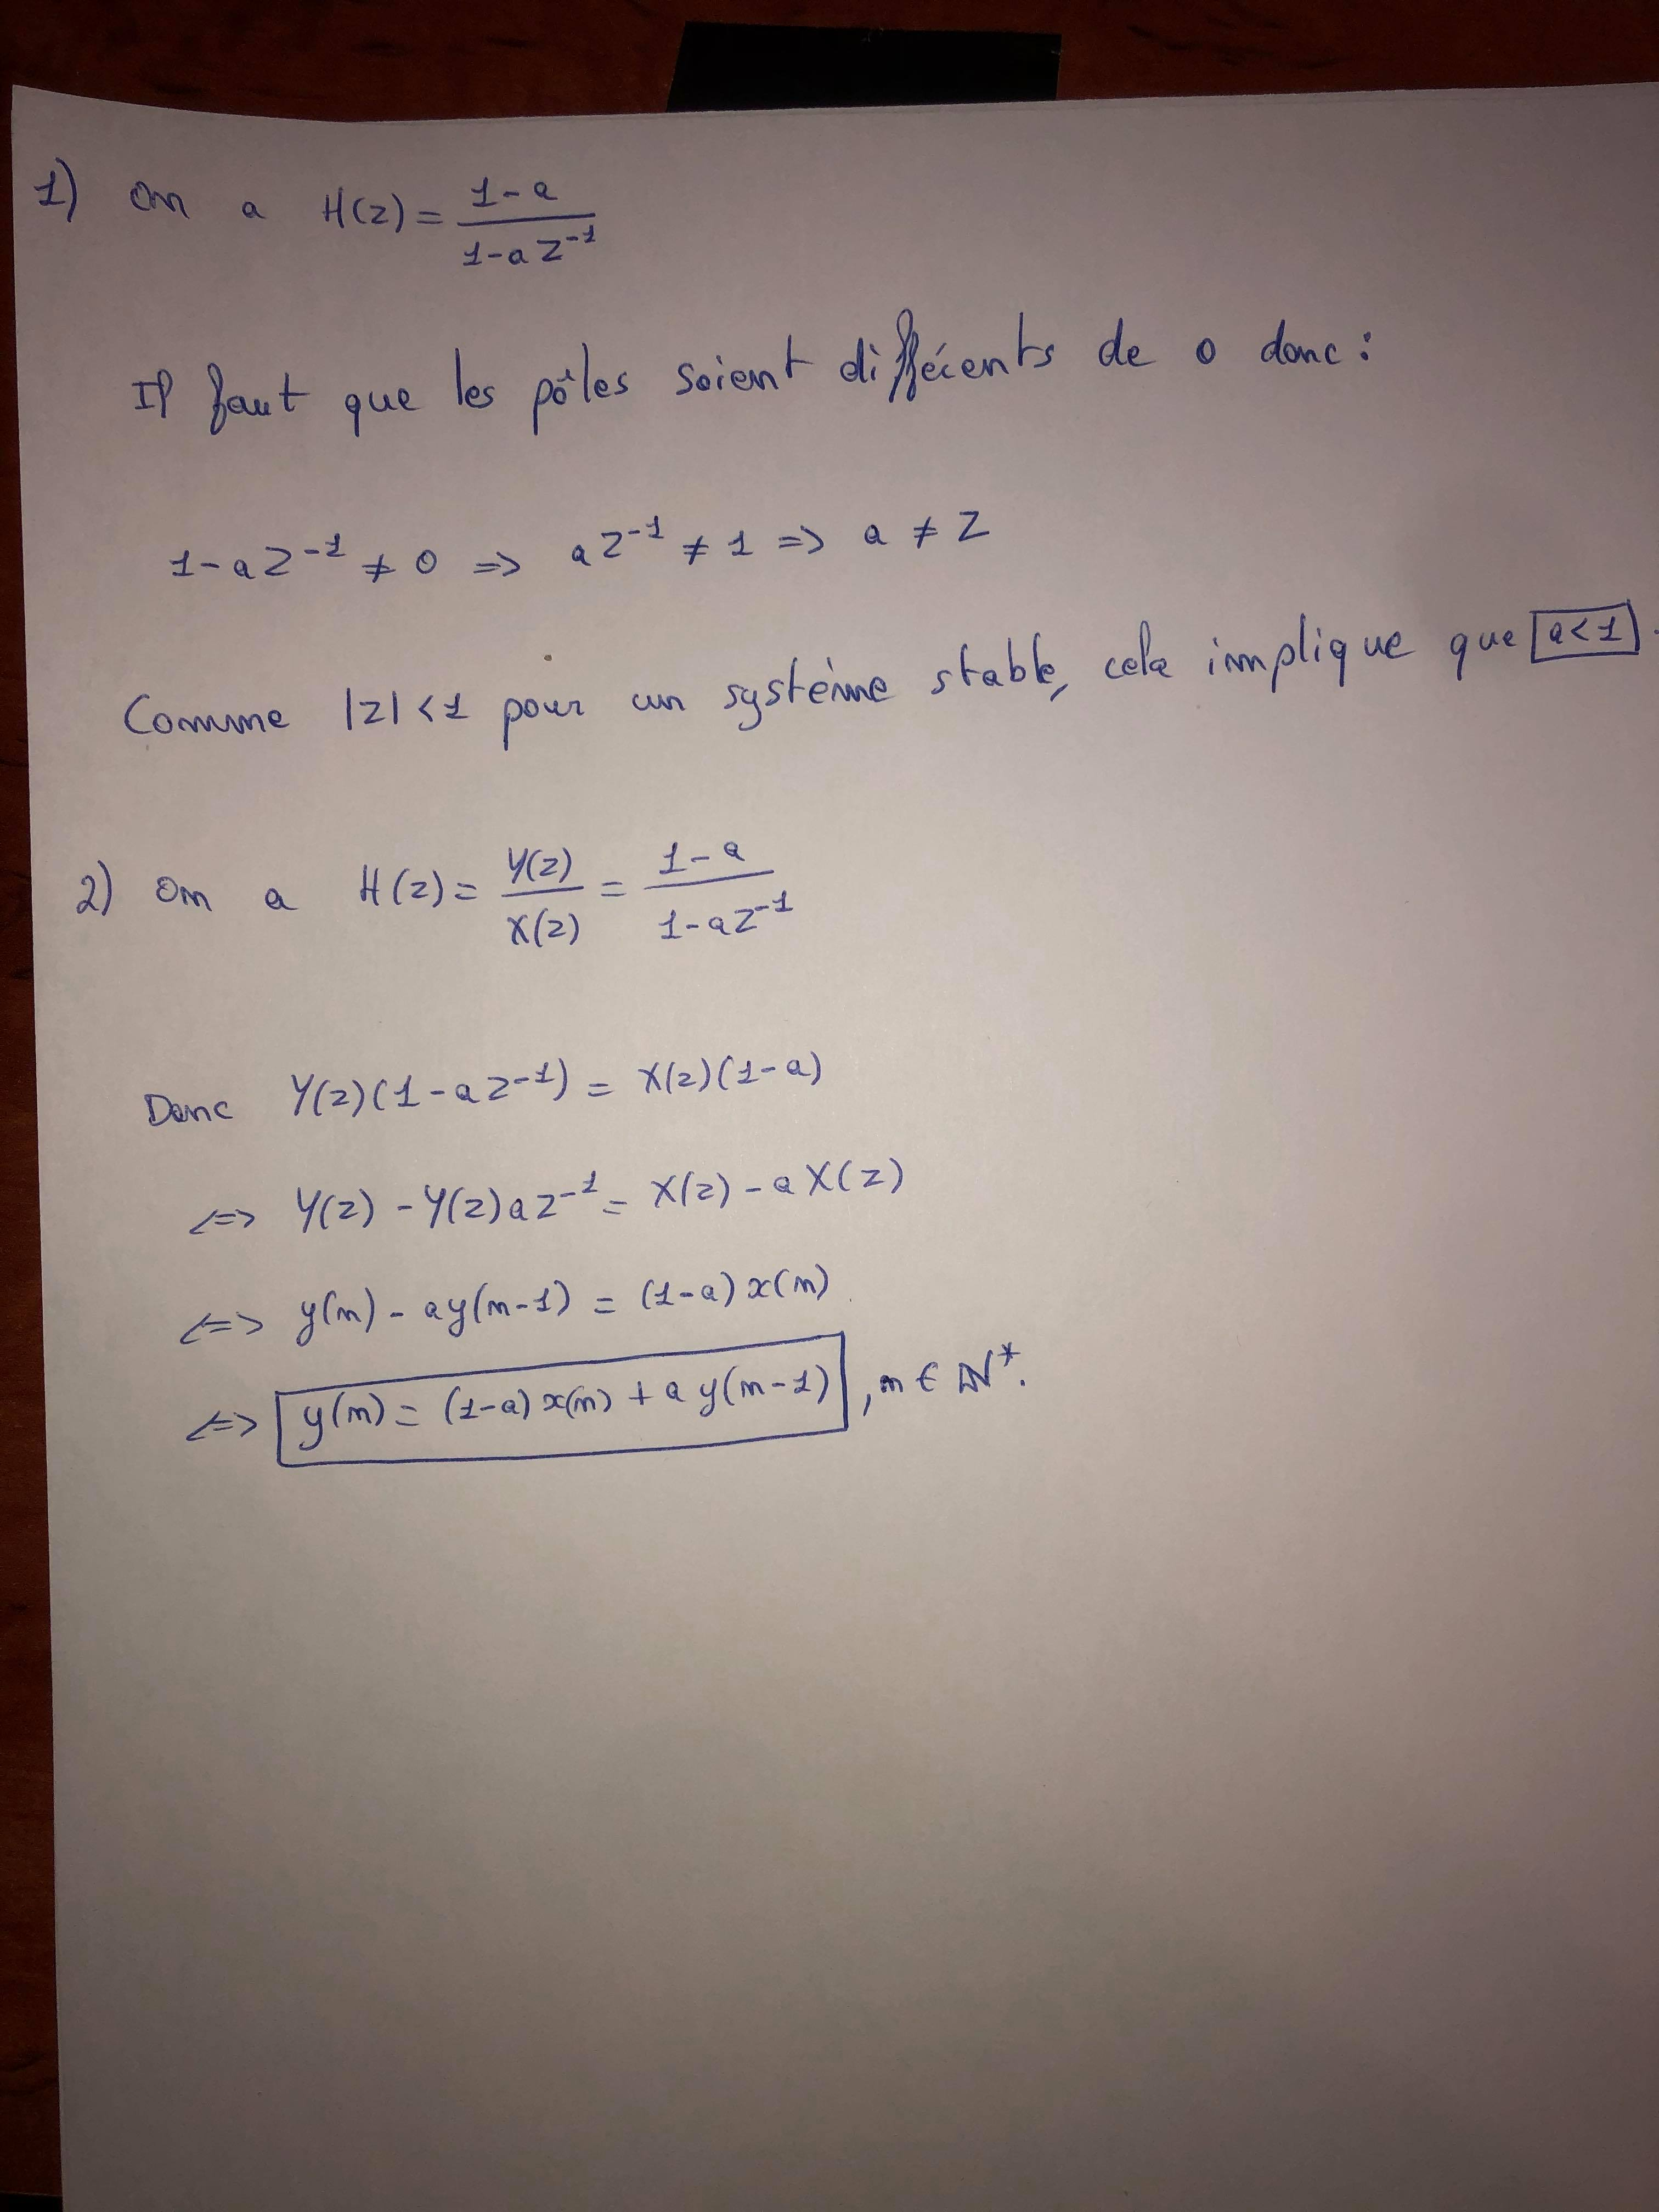 1) On a H(z) = \frac{1-a}{1-az^{-1}}
Il faut que les pôles soient différents de 0 donc :
1-az^{-1} ≠ 0 => az^{-1} ≠ 1 => a ≠ z
Comme |z| < 1 pour un système stable, cela implique que a < 1.
2) On a H(z) = \frac{Y(z)}{X(z)} = \frac{1-a}{1-az^{-1}}
Donc Y(z)(1-az^{-1}) = X(z)(1-a)
<=> Y(z) - Y(z)az^{-1} = X(z) - aX(z)
<=> y(n) - ay(n-1) = (1-a)x(n)
<=> y(n) = (1-a)x(n) + ay(n-1), n ∈ ℕ*.